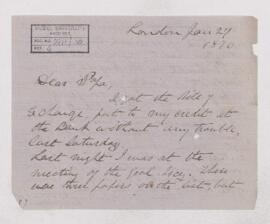 London Jan 27
1870
Dear Papa,
I got the Bill of
Exchange, put to my credit at
the Bank without any trouble,
last Saturday.
Last night I was at the
meeting of the Geol Socy. There
were three papers on the list, but